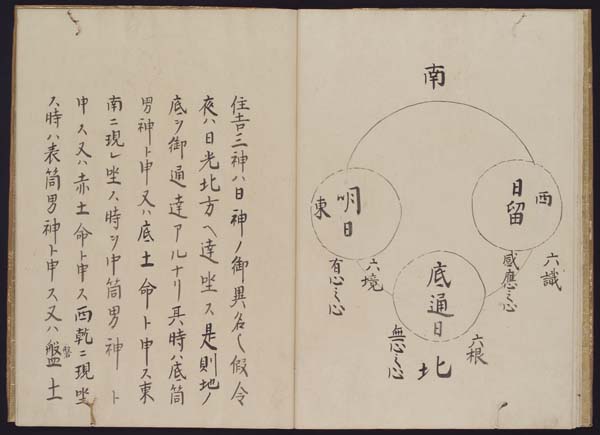 南
西
日留
六識
感應之心
東
明日
六境
有心之心
底通日
北
六根
無心之心
住吉三神ハ日神ノ御異名〆假令
夜ハ日光北方ヘ達坐ス是則地ノ
底ヲ御通達アルナリ其時ハ底筒
男神ト申又ハ底土命ト申ス東
南ニ現レ坐ス時ヲ中筒男神ト
申ス又ハ赤土命ト申ス西乾ニ現坐
ス時ハ表筒男神ト申ス又ハ盤土